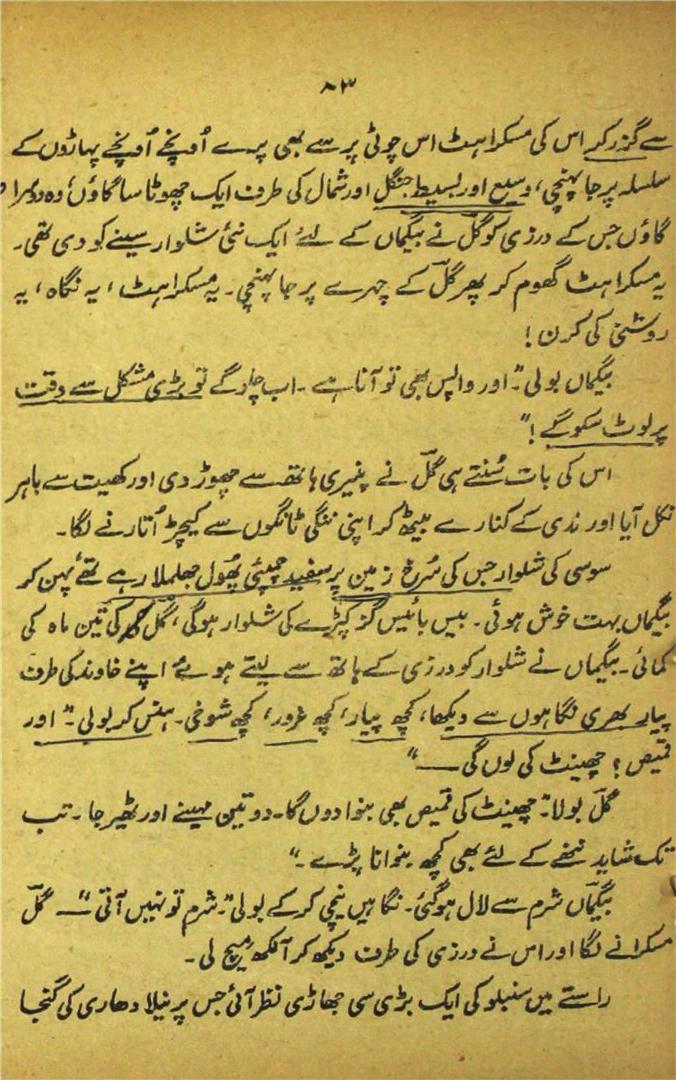 ۸۳
سے گزر کر اس کی مسکراہٹ اس چوٹی پر سے بھی پرے اُونچے اُونچے پہاڑوں کے
سلسلہ پر جا پہنچی، وسیع اور بسیط جنگل اور شمال کی طرف ایک چھوٹا سا گاؤں وہ دوسرا
گاؤں جس کے درزی کو گلؔ نے بیگماں کے لئے ایک نئی شلوار سینے کو دی تھی۔
یہ مسکراہٹ گھوم کر پھر گلؔ کے چہرے پر جا پہنچی۔ یہ مسکراہٹ، یہ نگاہ، یہ
روشنی کی کرن!
بیگماں بولی "اور واپس بھی تو آنا ہے۔ اب چلو گے تو بڑی مشکل سے وقت
پر لوٹ سکو گے!"
اس کی بات سُنتے ہی گلؔ نے پنیری ہاتھ سے چھوڑ دی اور کھیت سے باہر
نکل آیا اور ندی کے کنارے بیٹھ کر اپنی ننگی ٹانگوں سے کیچڑ اُتارنے لگا۔
سوسی کی شلوار جس کی سُرخ زمین پر سفید چمپئی پھُول جھلملا رہے تھے پہن کر
بیگماں بہت خوش ہوئی۔ بیس بائیس گز کپڑے کی شلوار ہوگی، گل کی تین ماہ کی
کمائی۔ بیگماں نے شلوار کو درزی کے ہاتھ سے لیتے ہوئے اپنے خاوند کی طرف
پیار بھری نگاہوں سے دیکھا، کچھ پیار، کچھ غرور، کچھ شوخی۔ ہنس کر بولی "اور
قمیص؟ چھینٹ کی لوں گی —"
گلؔ بولا "چھینٹ کی قمیص بھی بنوا دوں گا۔ دو تین مہینے اور ٹھیر جا۔ تب
تک شاید ننھے کے لئے بھی کچھ بنوانا پڑے۔"
بیگماںؔ شرم سے لال ہوگئی۔ نگاہیں نیچی کرکے بولی "شرم تو نہیں آتی" — گلؔ
مسکرانے لگا اور اس نے درزی کی طرف دیکھ کر آنکھ میچ لی۔
راستے میں سنبلو کی ایک بڑی سی جھاڑی نظر آئی جس پر نیلا دھاری کی گنجا